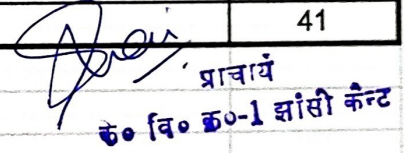 41
प्राचार्य
के० वि० क्र०-1 झांसी कैन्ट